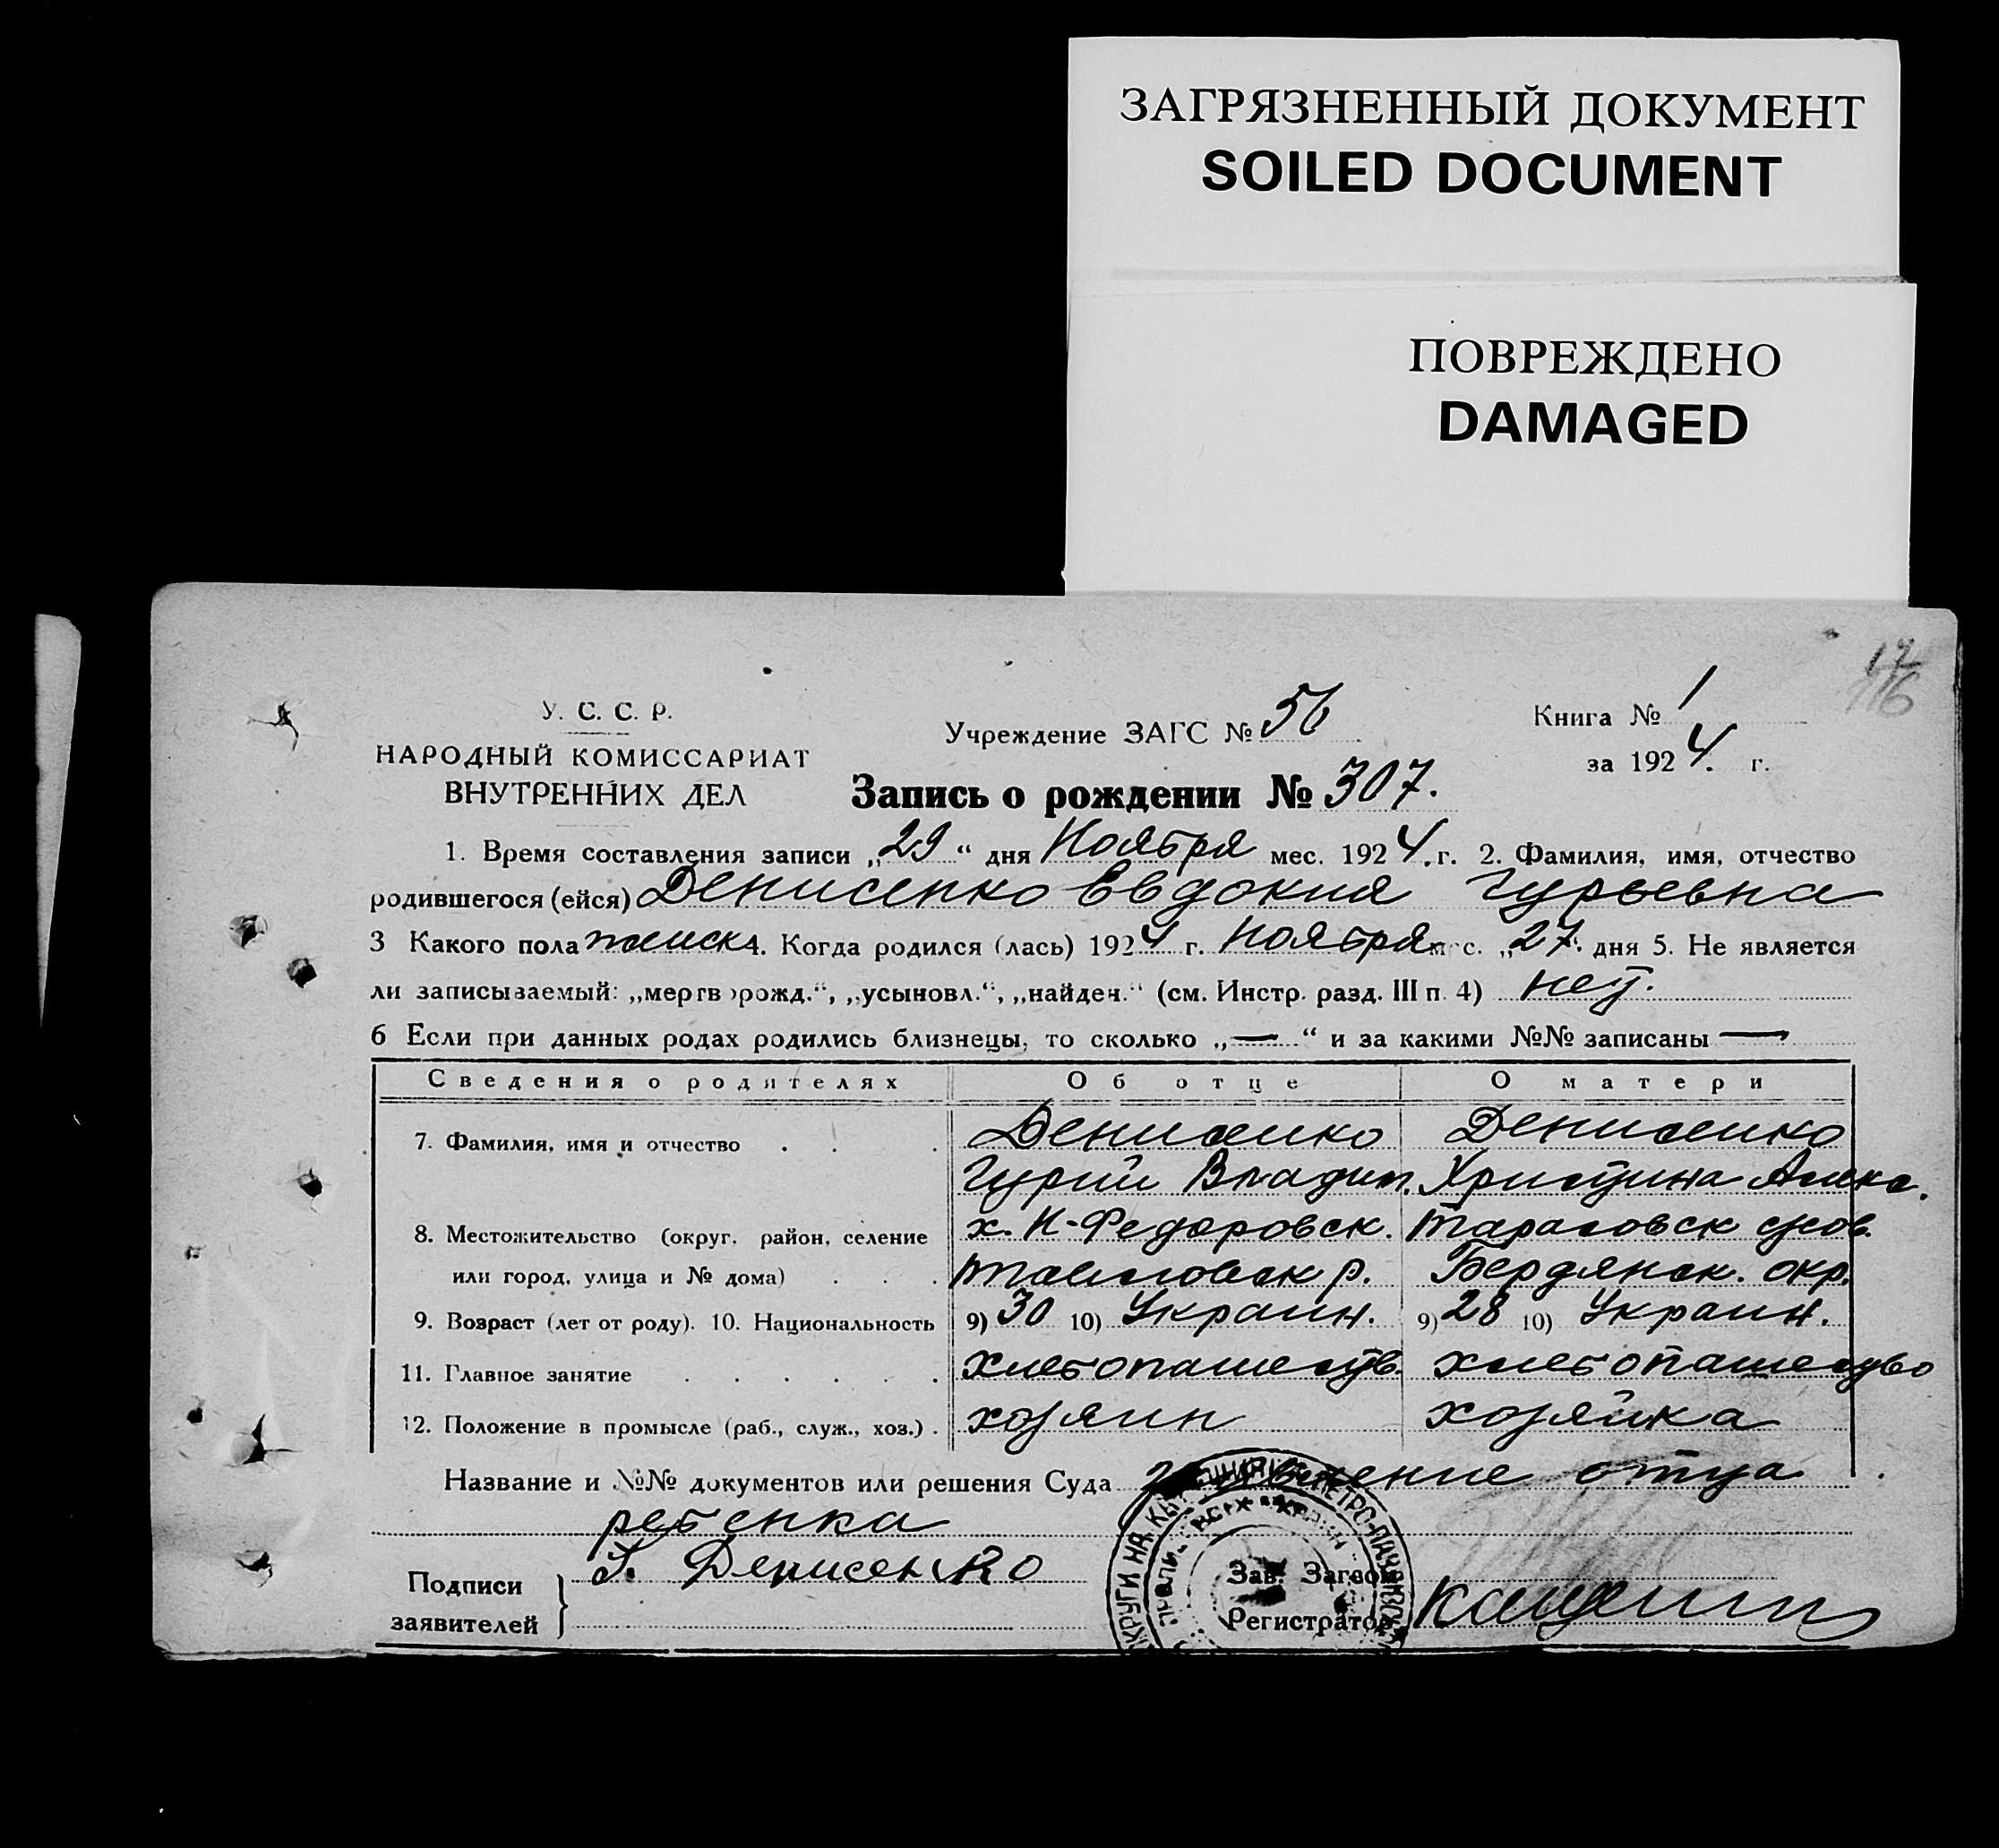 ЗАГРЯЗНЕННЫЙ ДОКУМЕНТ
SOILED DOCUMENT
ПОВРЕЖДЕНО
DAMAGED
17
У. С. С. Р.
НАРОДНЫЙ КОМИССАРИАТ
ВНУТРЕННИХ ДЕЛ
Учреждение ЗАГС № 56
Книга № 1
за 1924 г.
Запись о рождении № 307.
1. Время составления записи „29“ дня Ноября мес. 1924 г. 2. Фамилия, имя, отчество
родившегося (ейся) Денисенко Евдокия Гурьевна
3 Какого пола женск 4. Когда родился (лась) 1924 г. Ноября мес. „27“ дня 5. Не является
ли записываемый: „мертворожд.“, „усыновл.“, „найден.“ (см. Инстр. разд. III п. 4) нет.
6 Если при данных родах родились близнецы, то сколько „—“ и за какими №№ записаны —
Сведения о родителях Об отце О матери
7. Фамилия, имя и отчество Денисенко Денисенко
Гурий Владим. Христина Алекс.
8. Местожительство (округ, район, селение х. Н-Федоровск. сков.
или город, улица и № дома) р. Бердянск. окр.
9. Возраст (лет от роду). 10. Национальность 9) 30 10) Украин. 9) 28 10) Украин.
11. Главное занятие хлебопашеств. хлебопашество
12. Положение в промысле (раб., служ., хоз.) хозяин хозяйка
Название и №№ документов или решения Суда заявление отца
ребенка
Подписи
заявителей
Г. Денисенко
Зав. Загсом
Регистратор